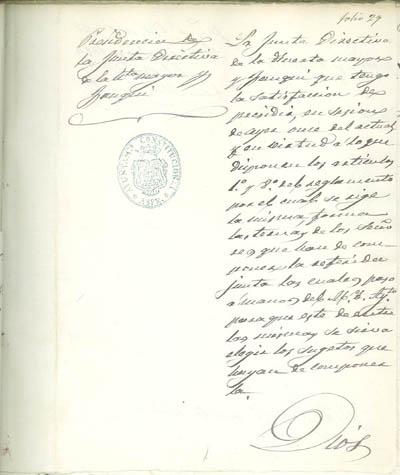 folio 29
Presidencia de
la Junta Directiva
de la
La Junta Directiva
de la Huerta mayor
y que tengo
la satisfaccion de
presidir, en sesion
de ayer once del actual
y en virtud a lo que
disponen los articulos
1º y 8º del reglamento
por el cual se rige
la misma, formó
las ternas de los Seño
res que han de com
poner la referida
junta las cuales paso
a manos del M. Y. Ayto
para que este de entre
las mismas se sirva
elegir los sugetos que
hayan de componer
la.
Dios
CONSTITUCIONAL
ASPE